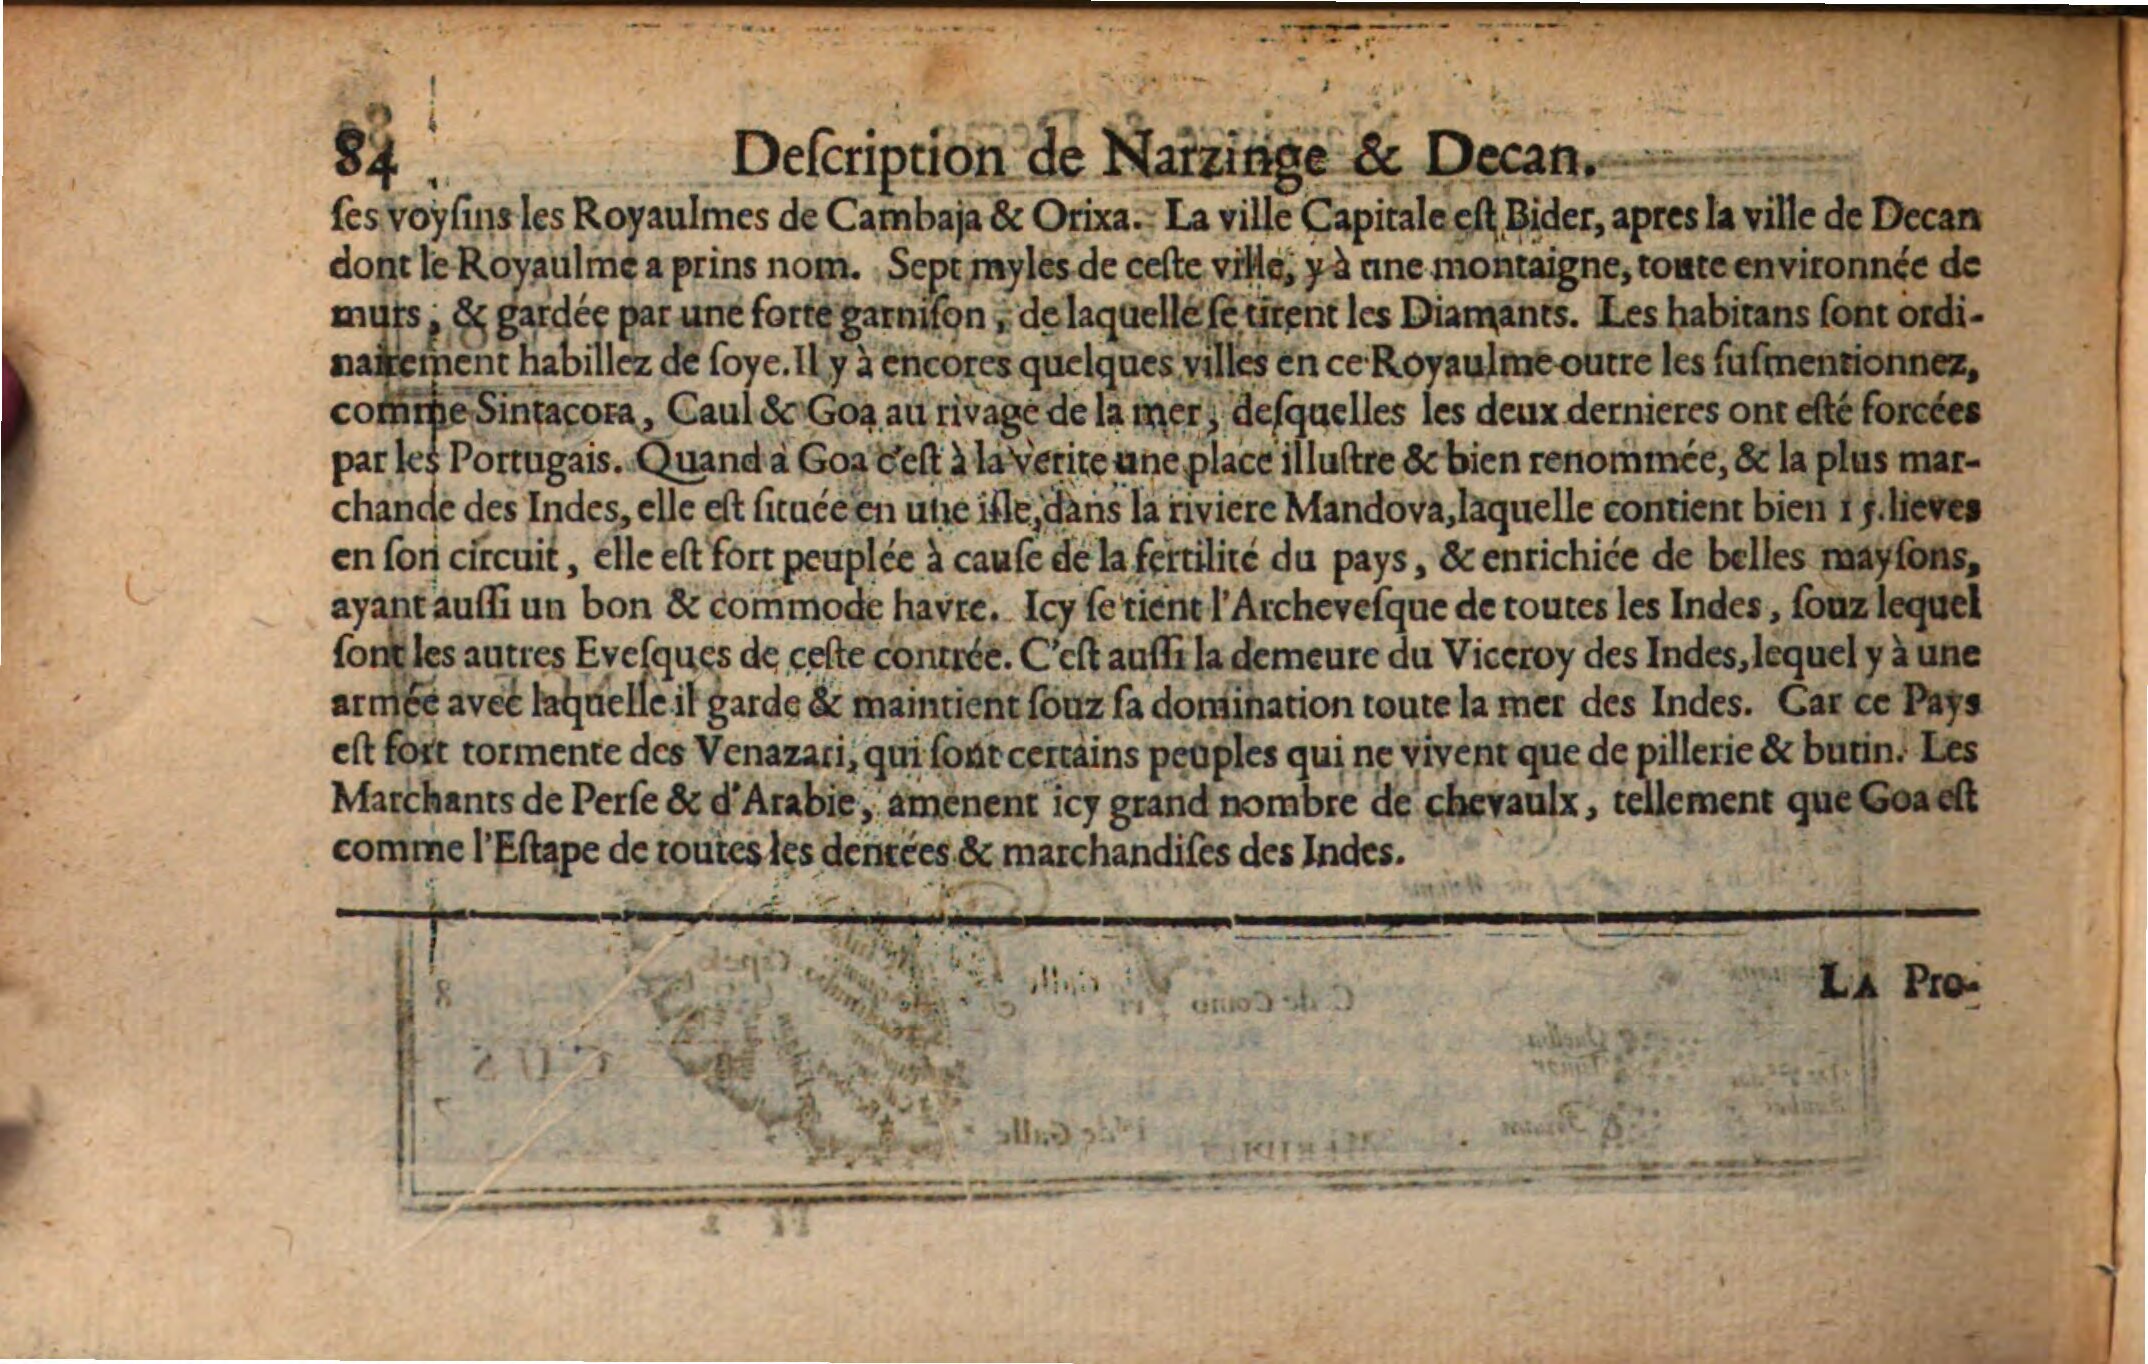 84 Deſcription de Narzinge & Decan.
ſes voyſins les Royaulmes de Cambaja & Orixa. La ville Capitale eſt Bider, apres la ville de Decan
dont le Royaulme a prins nom. Sept myles de ceſte ville, y à une montaigne, toute environnée de
murs, & gardée par une forte garniſon, de laquelle ſe tirent les Diamants. Les habitans ſont ordi-
nairement habillez de ſoye. Il y à encores quelques villes en ce Royaulme outre les ſuſmentionnez,
comme Sintacora, Caul & Goa au rivage de la mer, deſquelles les deux dernieres ont eſté forcées
par les Portugais. Quand à Goa c'eſt à la verite une place illuſtre & bien renommée, & la plus mar-
chande des Indes, elle eſt ſituée en une iſle, dans la riviere Mandova, laquelle contient bien 15. lieves
en ſon circuit, elle eſt fort peuplée à cauſe de la fertilité du pays, & enrichiée de belles mayſons,
ayant auſſi un bon & commode havre. Icy ſe tient l'Archeveſque de toutes les Indes, ſouz lequel
ſont les autres Eveſques de ceſte contrée. C'eſt auſſi la demeure du Viceroy des Indes, lequel y à une
armée avec laquelle il garde & maintient ſouz ſa domination toute la mer des Indes. Car ce Pays
eſt fort tormente des Venazari, qui ſont certains peuples qui ne vivent que de pillerie & butin. Les
Marchants de Perſe & d'Arabie, amenent icy grand nombre de chevaulx, tellement que Goa eſt
comme l'Eſtape de toutes les denrées & marchandiſes des Indes.
LA Pro-